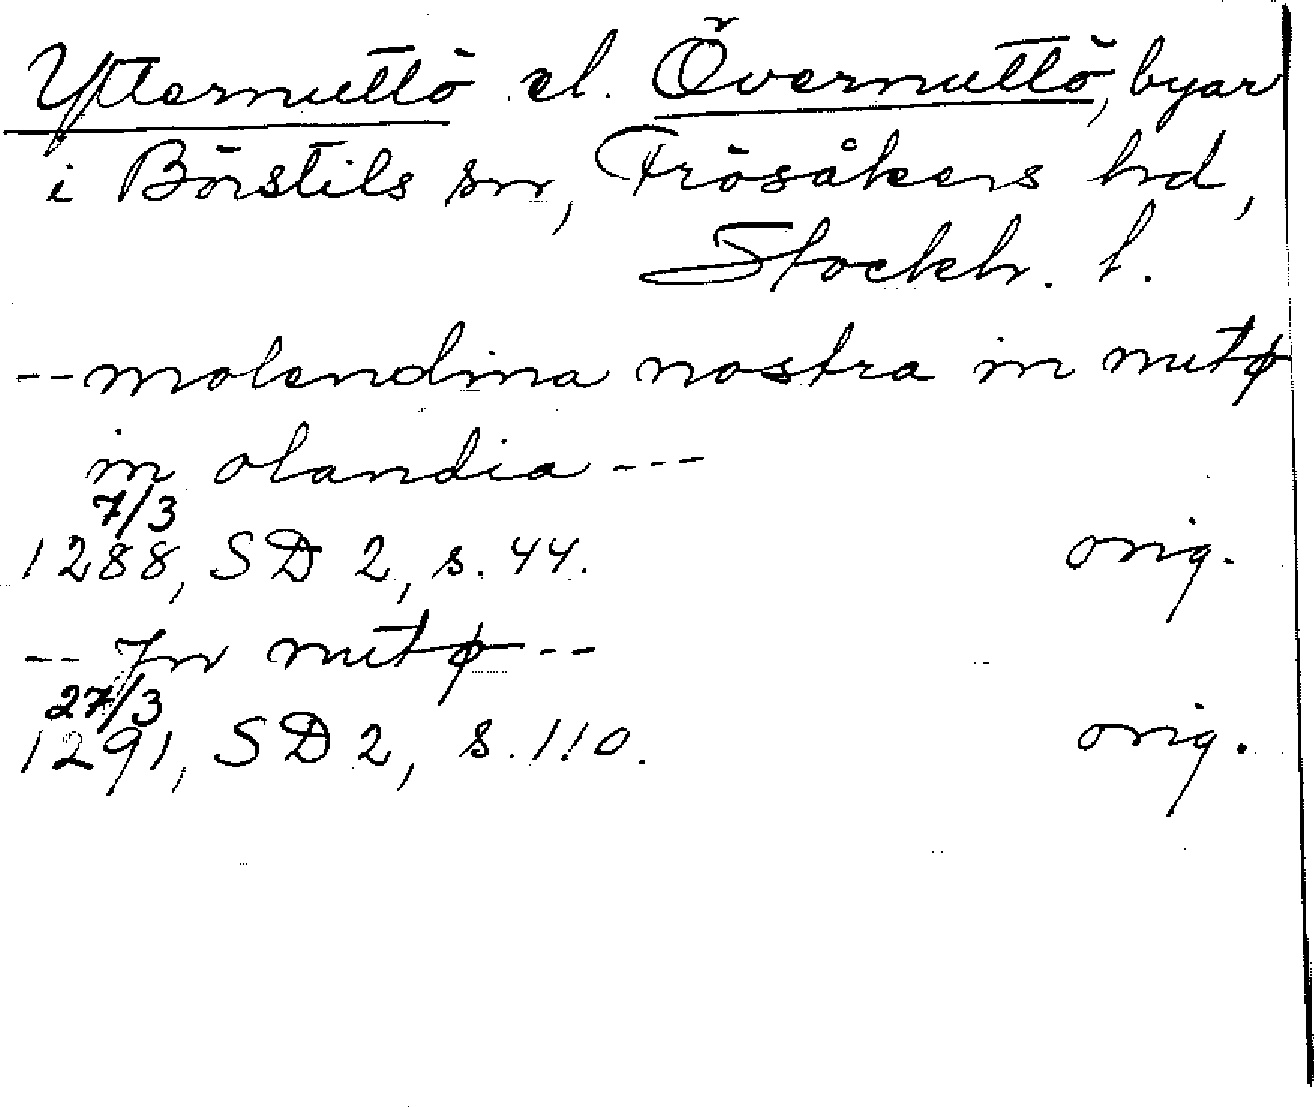 Ytternuttö el. Övernuttö, byar
i Börstils sn, Frösåkers hd,
Stockh. l.
-- molendina nostra in nutø
in olandia ---
7/3
1288, SD 2, s. 44. orig.
-- Jn nutø --
27/3
1291, SD 2, s. 110. orig.